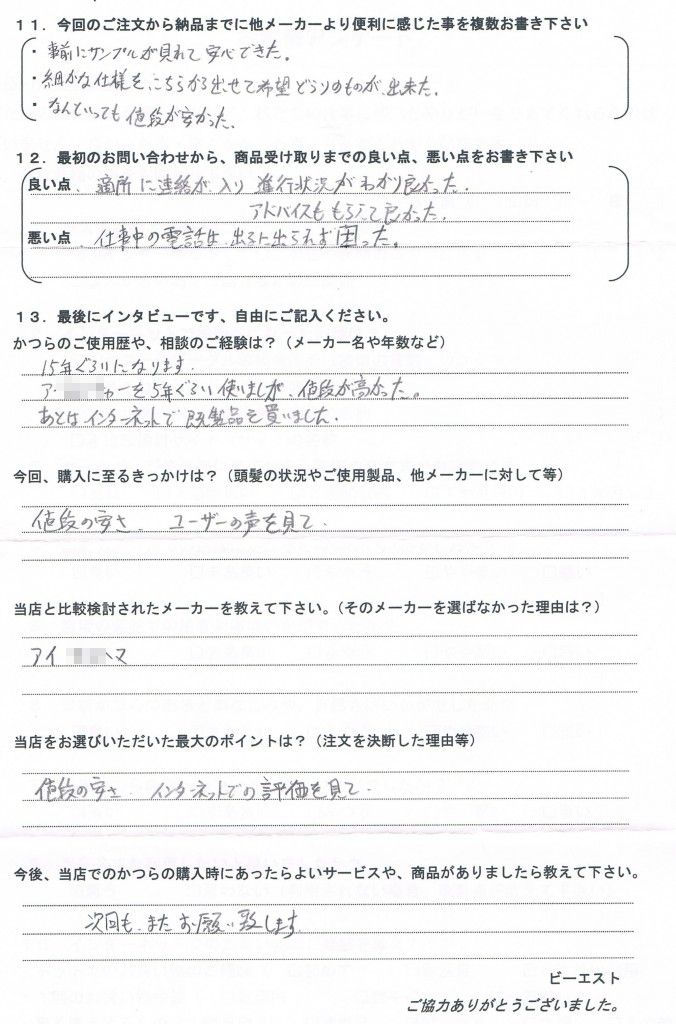 11．今回のご注文から納品までに他メーカーより便利に感じた事を複数お書き下さい
・事前にサンプルが見れて安心できた。
・細かな仕様をこちらから出せて希望どうりのものが出来た。
・なんといっても値段が安かった。
12．最初のお問い合わせから、商品受け取りまでの良い点、悪い点をお書き下さい
良い点、適所に連絡が入り進行状況がわかり良かった。
アドバイスももらえて良かった。
悪い点、仕事中の電話は出るに出られず困った。
13．最後にインタビューです、自由にご記入ください。
かつらのご使用歴や、相談のご経験は？（メーカー名や年数など）
15年ぐらいになります。
ア ャーを5年ぐらい使いましが、値段が高かった。
あとはインターネットで既製品を買いました。
今回、購入に至るきっかけは？（頭髪の状況やご使用製品、他メーカーに対して等）
値段の安さ ユーザーの声を見て。
当店と比較検討されたメーカーを教えて下さい。（そのメーカーを選ばなかった理由は？）
アイ
当店をお選びいただいた最大のポイントは？（注文を決断した理由等）
値段の安さ インターネットでの評価を見て。
今後、当店でのかつらの購入時にあったらよいサービスや、商品がありましたら教えて下さい。
次回も、またお願い致します
ビーエスト
ご協力ありがとうございました。